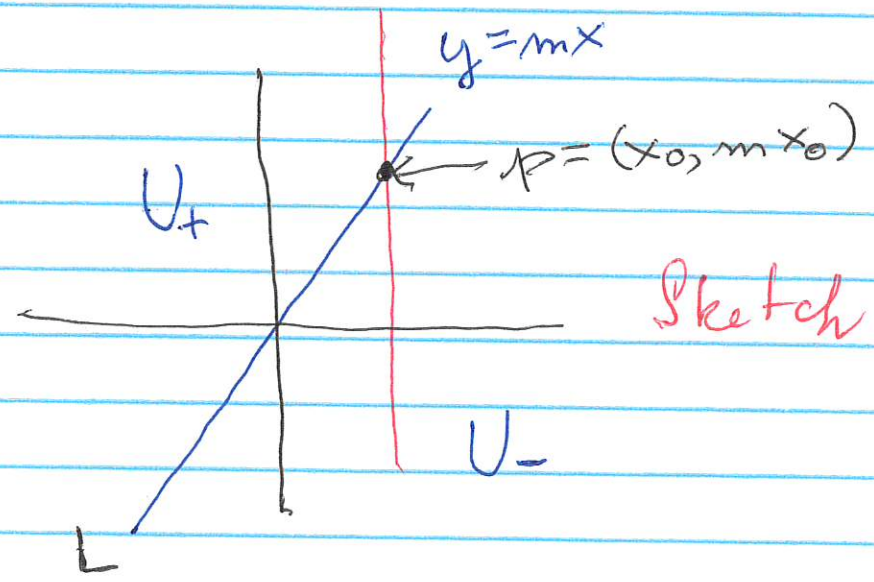 y=mx
p=(x₀, mx₀)
U₊
Sketch
U₋
L